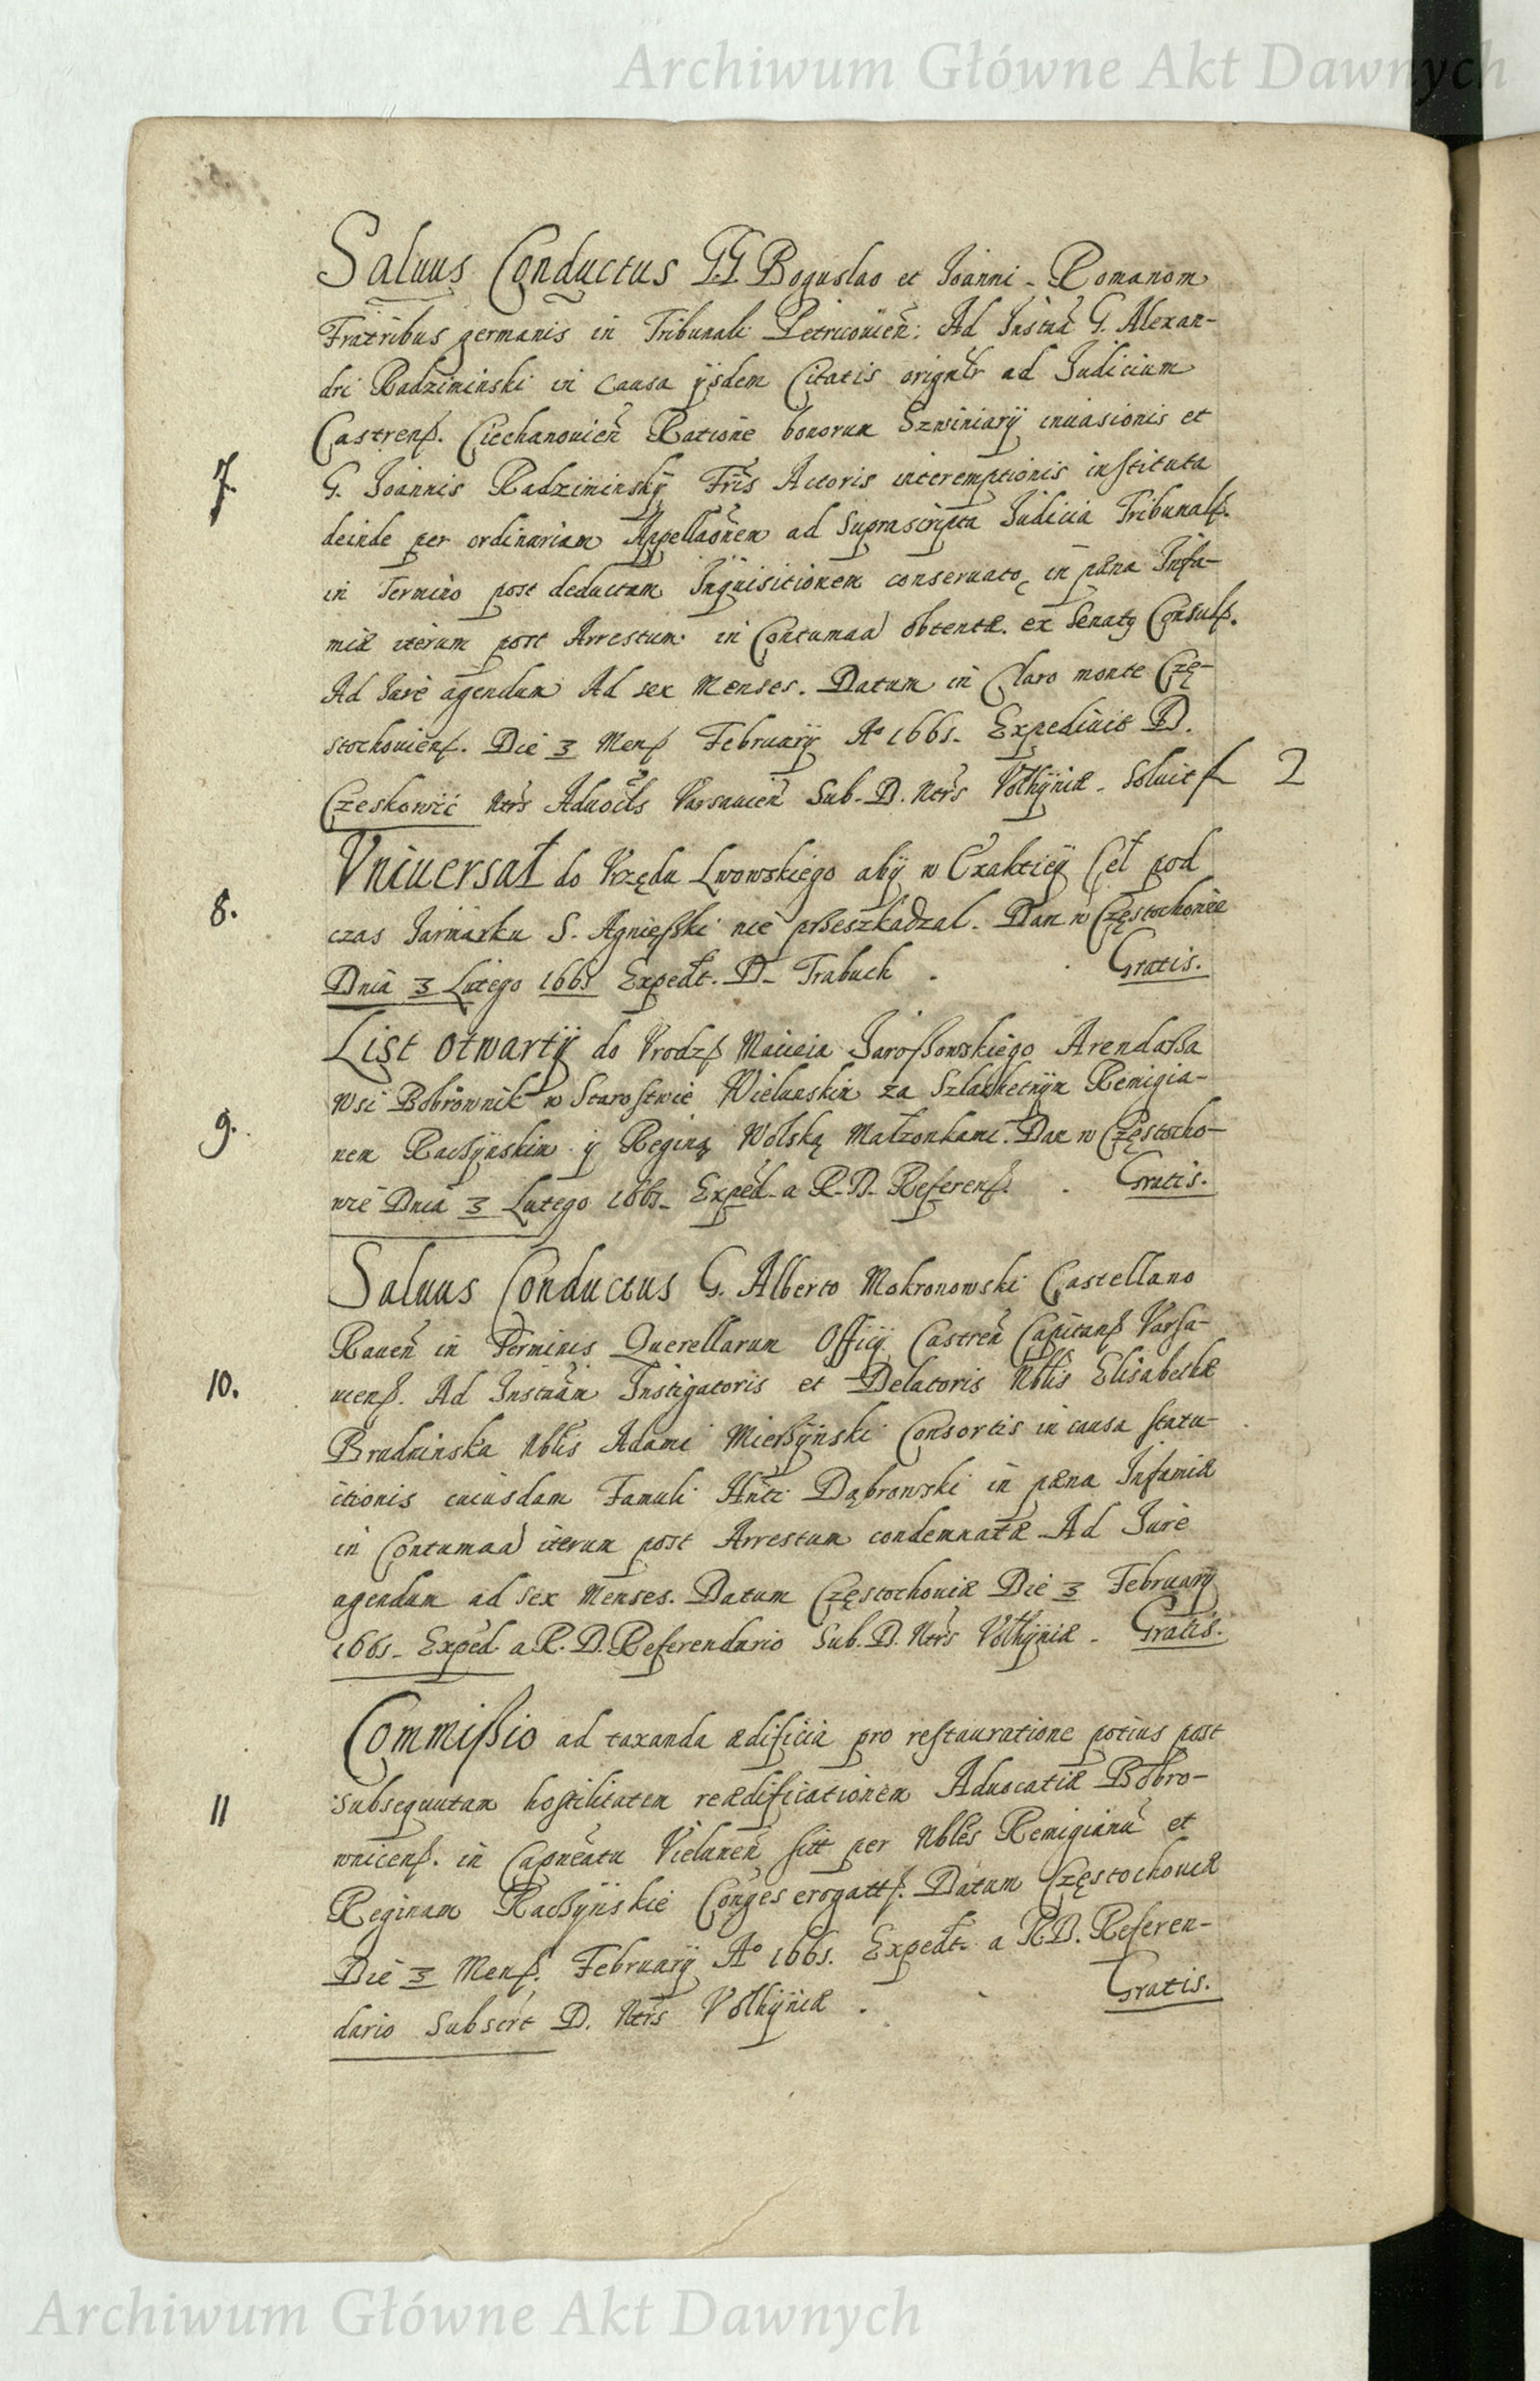 Archiwum Główne Akt Dawnych
Saluus Conductus GG Boguslao et Joanni Romanom
Fratribus germanis in Tribunali Petricouien: Ad Instna G. Alexan-
dri Radziminski in causa ijsdem Citatis orignlr ad Judicium
Castrenß. Ciechanouien Ratione bonorum Szwiniary inuasionis et
7. G. Joannis Radziminskÿ Fris Actoris interemptionis instituta
deinde per ordinariam Appellaonem ad Suprascripta Judicia Tribunalß.
in Termino post deductam Inquisitionem conseruato in pæna Infa-
miæ iterum post Arrestum in Contumaa obtentæ. ex Senatq Consulß.
Ad Jure agendum Ad sex Menses. Datum in Claro monte Czę-
stochouienß. Die 3 Menß Februarÿ Ao 1661. Expediuit D.
Czeskowic Ntrs Aduocils Varsauien Sub. D. Ntrs Volhÿniæ. Soluit f 2
Vniuersał do Vrzędu Lwowskiego abÿ w Exaktieÿ Ceł pod
8. czas Jarmarku S. Agnießki nie prßeszkadzal. Dan w Częstochowie
Dnia 3 Lutego 1661 Expedt. D. Trabuch . Gratis.
List otwartÿ do Vrodzß Macieia Jaroßowskiego Arendaßa
Wsi Bobrownik w Starostwie Wielunskim za Szlachetnÿm Remigia-
9. nem Racßÿnskim ÿ Reginą Wolską Małzonkami. Dan w Częstocho-
wie Dnia 3 Lutego 1661. Exped. a R. D. Referenß. . Gratis.
Saluus Conductus G. Alberto Mokronowski Castellano
Rauen in Terminis Querellarum Officÿ Castren Capitanß Varsa-
10. uienß. Ad Instnam Instigatoris et Delatoris Nblis Elisabethæ
Brudninska Nblis Adami Mierßÿnski Consortis in causa statu-
itionis cuiusdam Famuli Hnti Dąbrowski in pæna Infamiæ
in Contumaa iterum post Arrestum condemnatæ Ad Jure
agendum ad sex Menses. Datum Częstochouiæ Die 3 Februarÿ
1661. Exped. a R. D. Referendario Sub. D. Ntrs Volhÿniæ. Gratis.
Commißio ad taxanda ædificia pro restauratione potius post
11 subsequutam hostilitatem reædificationem Aduocatiæ Bobro-
wnicenß. in Capneatu Vielunen sitt per Nbles Remigianu et
Reginam Racßÿnskie Conges erogattß. Datum Częstochouiæ
Die 3 Menß. Februarÿ Ao 1661. Expedt. a R.D. Referen-
dario Subscrt D. Ntrs Volhÿniæ . Gratis.
Archiwum Główne Akt Dawnych